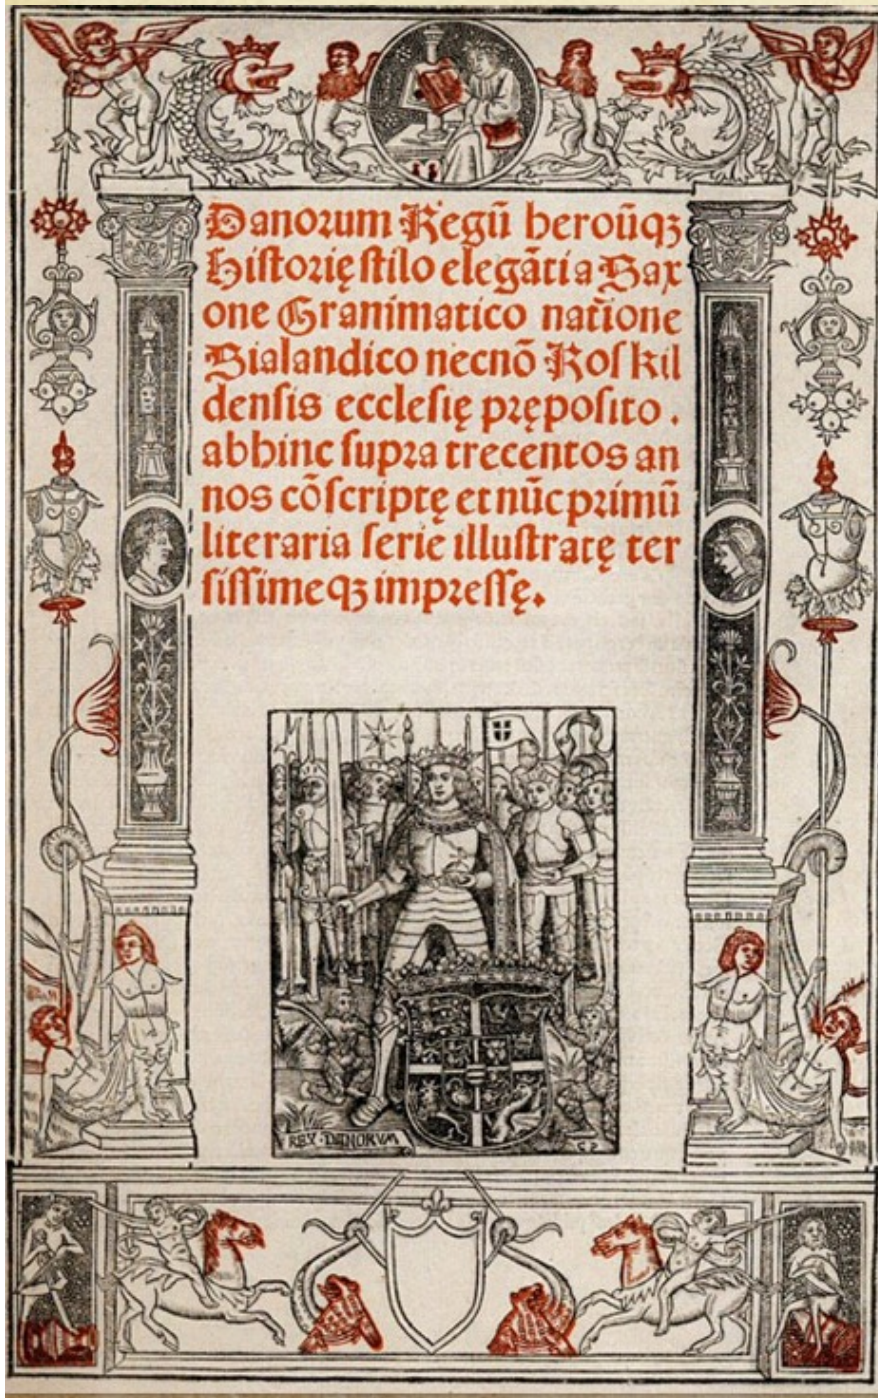 Danorum Regū heroūqꝫ
Historię stilo elegāti a Sax
one Grammatico natiōne
Sialandico necnō Roskil
densis ecclesię pręposito .
abhinc supra trecentos an
nos cōscriptę et nūc primū
literaria serie illustratę ter
sissimeqꝫ impressę.
REX · DANORVM